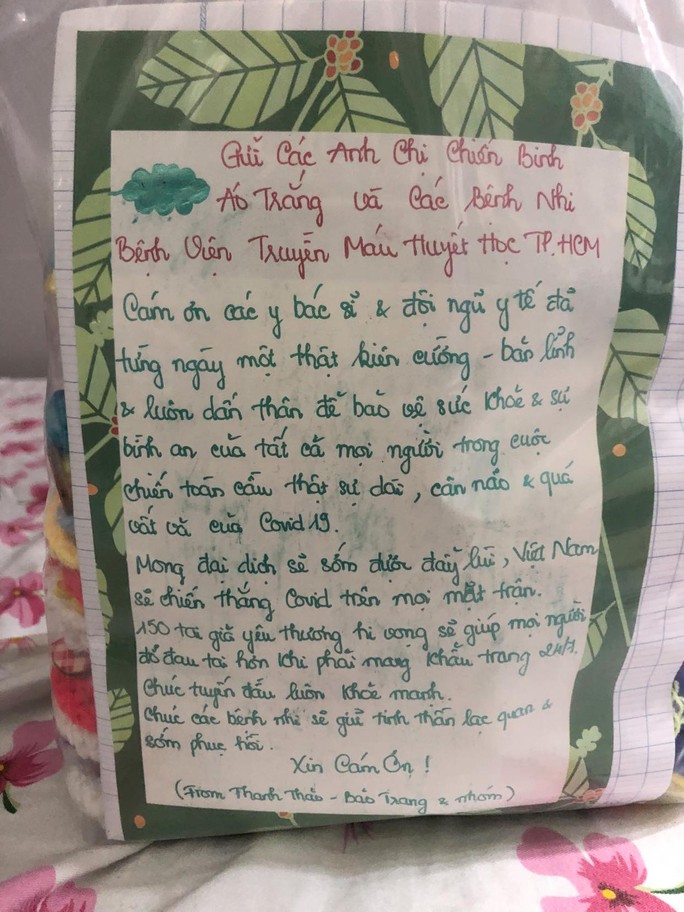 Gửi Các Anh Chị Chiến Binh
Áo Trắng và Các Bệnh Nhi
Bệnh Viện Truyền Máu Huyết Học TP.HCM
Cám ơn các y bác sĩ & đội ngũ y tế đã
từng ngày một thật kiên cường - bản lĩnh
& luôn dấn thân để bảo vệ sức khoẻ & sự
bình an của tất cả mọi người trong cuộc
chiến toàn cầu thật sự dài, cân não & quá
vất vả của Covid 19.
Mong đại dịch sẽ sớm được đẩy lùi, Việt Nam
sẽ chiến thắng Covid trên mọi mặt trận.
150 tai giả yêu thương hi vọng sẽ giúp mọi người
đỡ đau tai hơn khi phải mang khẩu trang 24/7.
Chúc tuyến đầu luôn khoẻ mạnh.
Chúc các bệnh nhi sẽ giữ tinh thần lạc quan &
sớm phục hồi.
Xin Cám Ơn !
(From Thanh Thảo - Bảo Trang & nhóm)